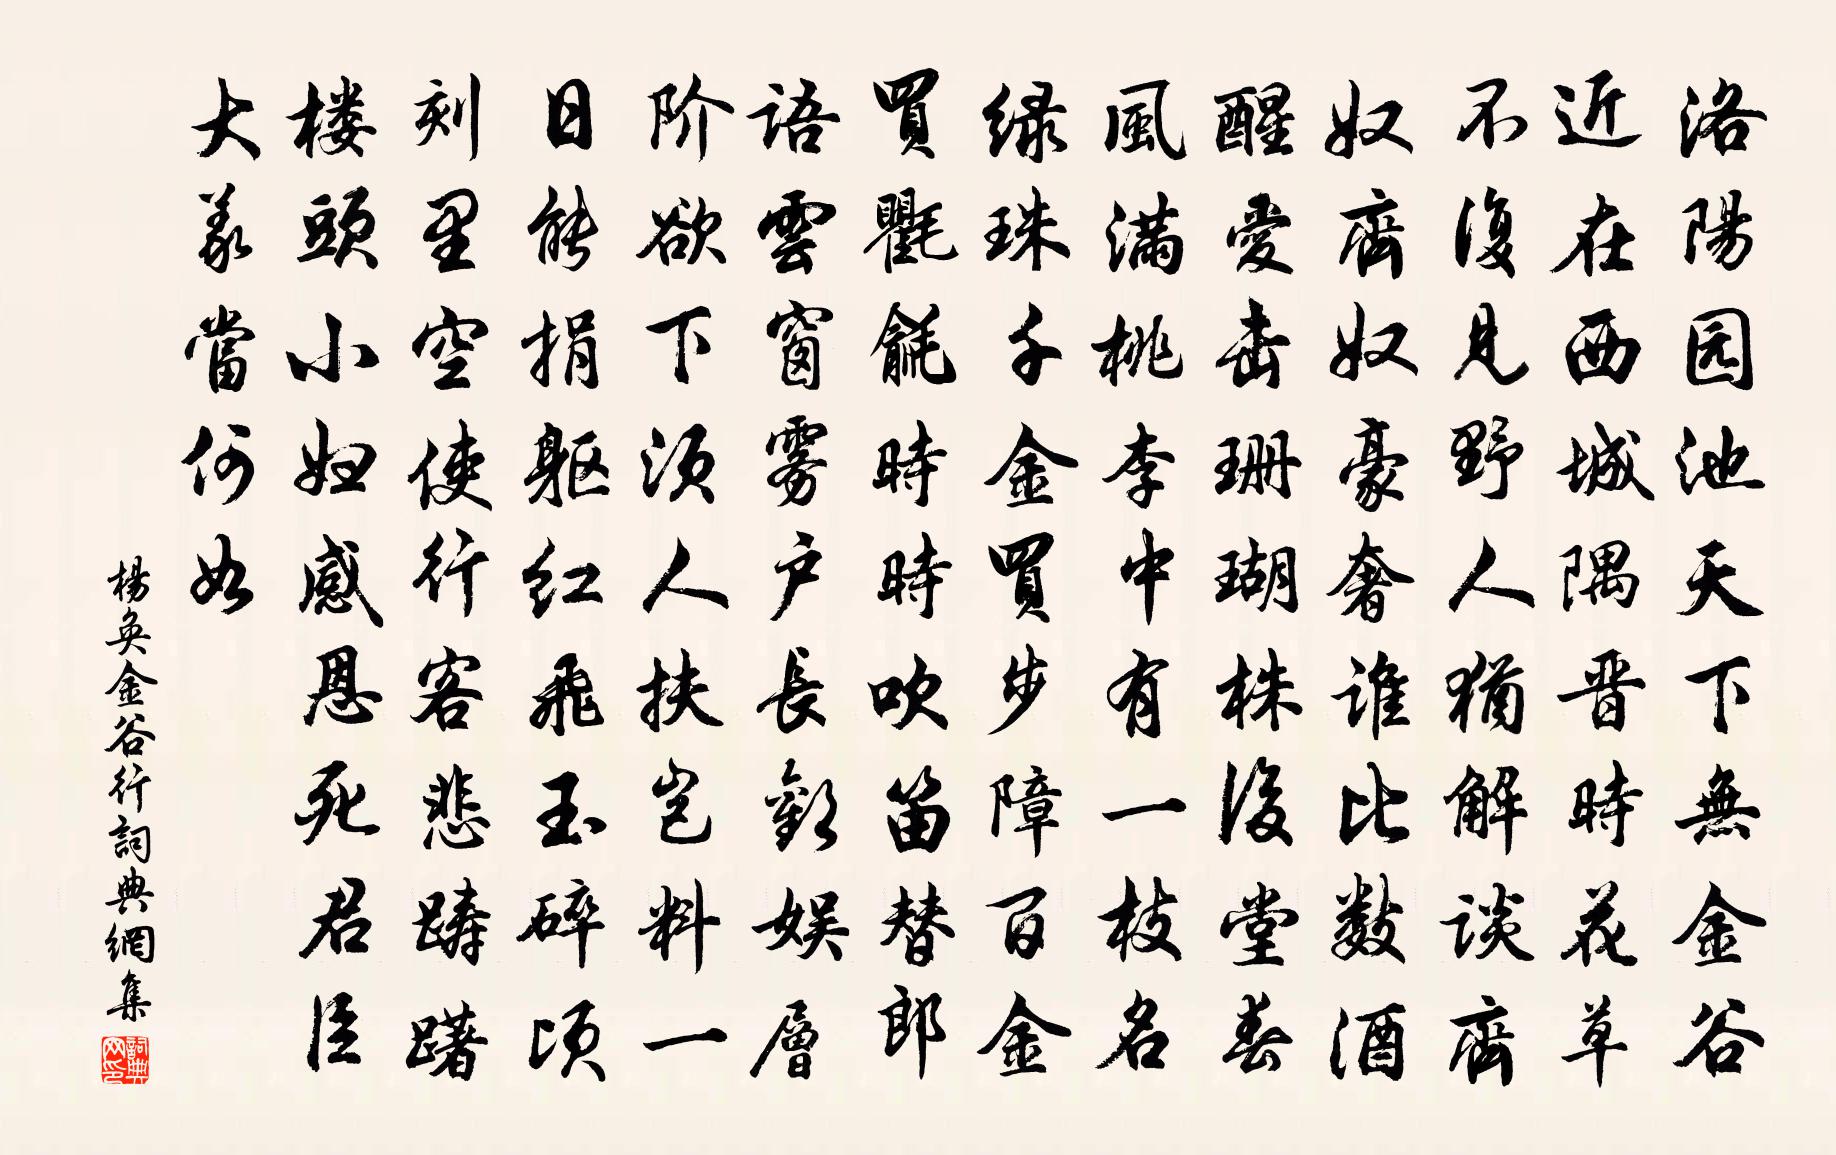 洛陽园池天下無金谷
近在西城隅晋時花草
不復見野人猶解談齊
奴齊奴豪奢谁比数酒
醒愛击珊瑚株後堂春
風满桃李中有一枝名
绿珠千金買步障百金
買氍毹時時吹笛替郎
語雲窗雾户長歡娱層
阶欲下须人扶岂料一
日能捐躯红飛玉碎顷
刻里空使行客悲踌躇
楼頭小妇感恩死君臣
大義當何如
楊奂金谷行詞典網集
詞典网印